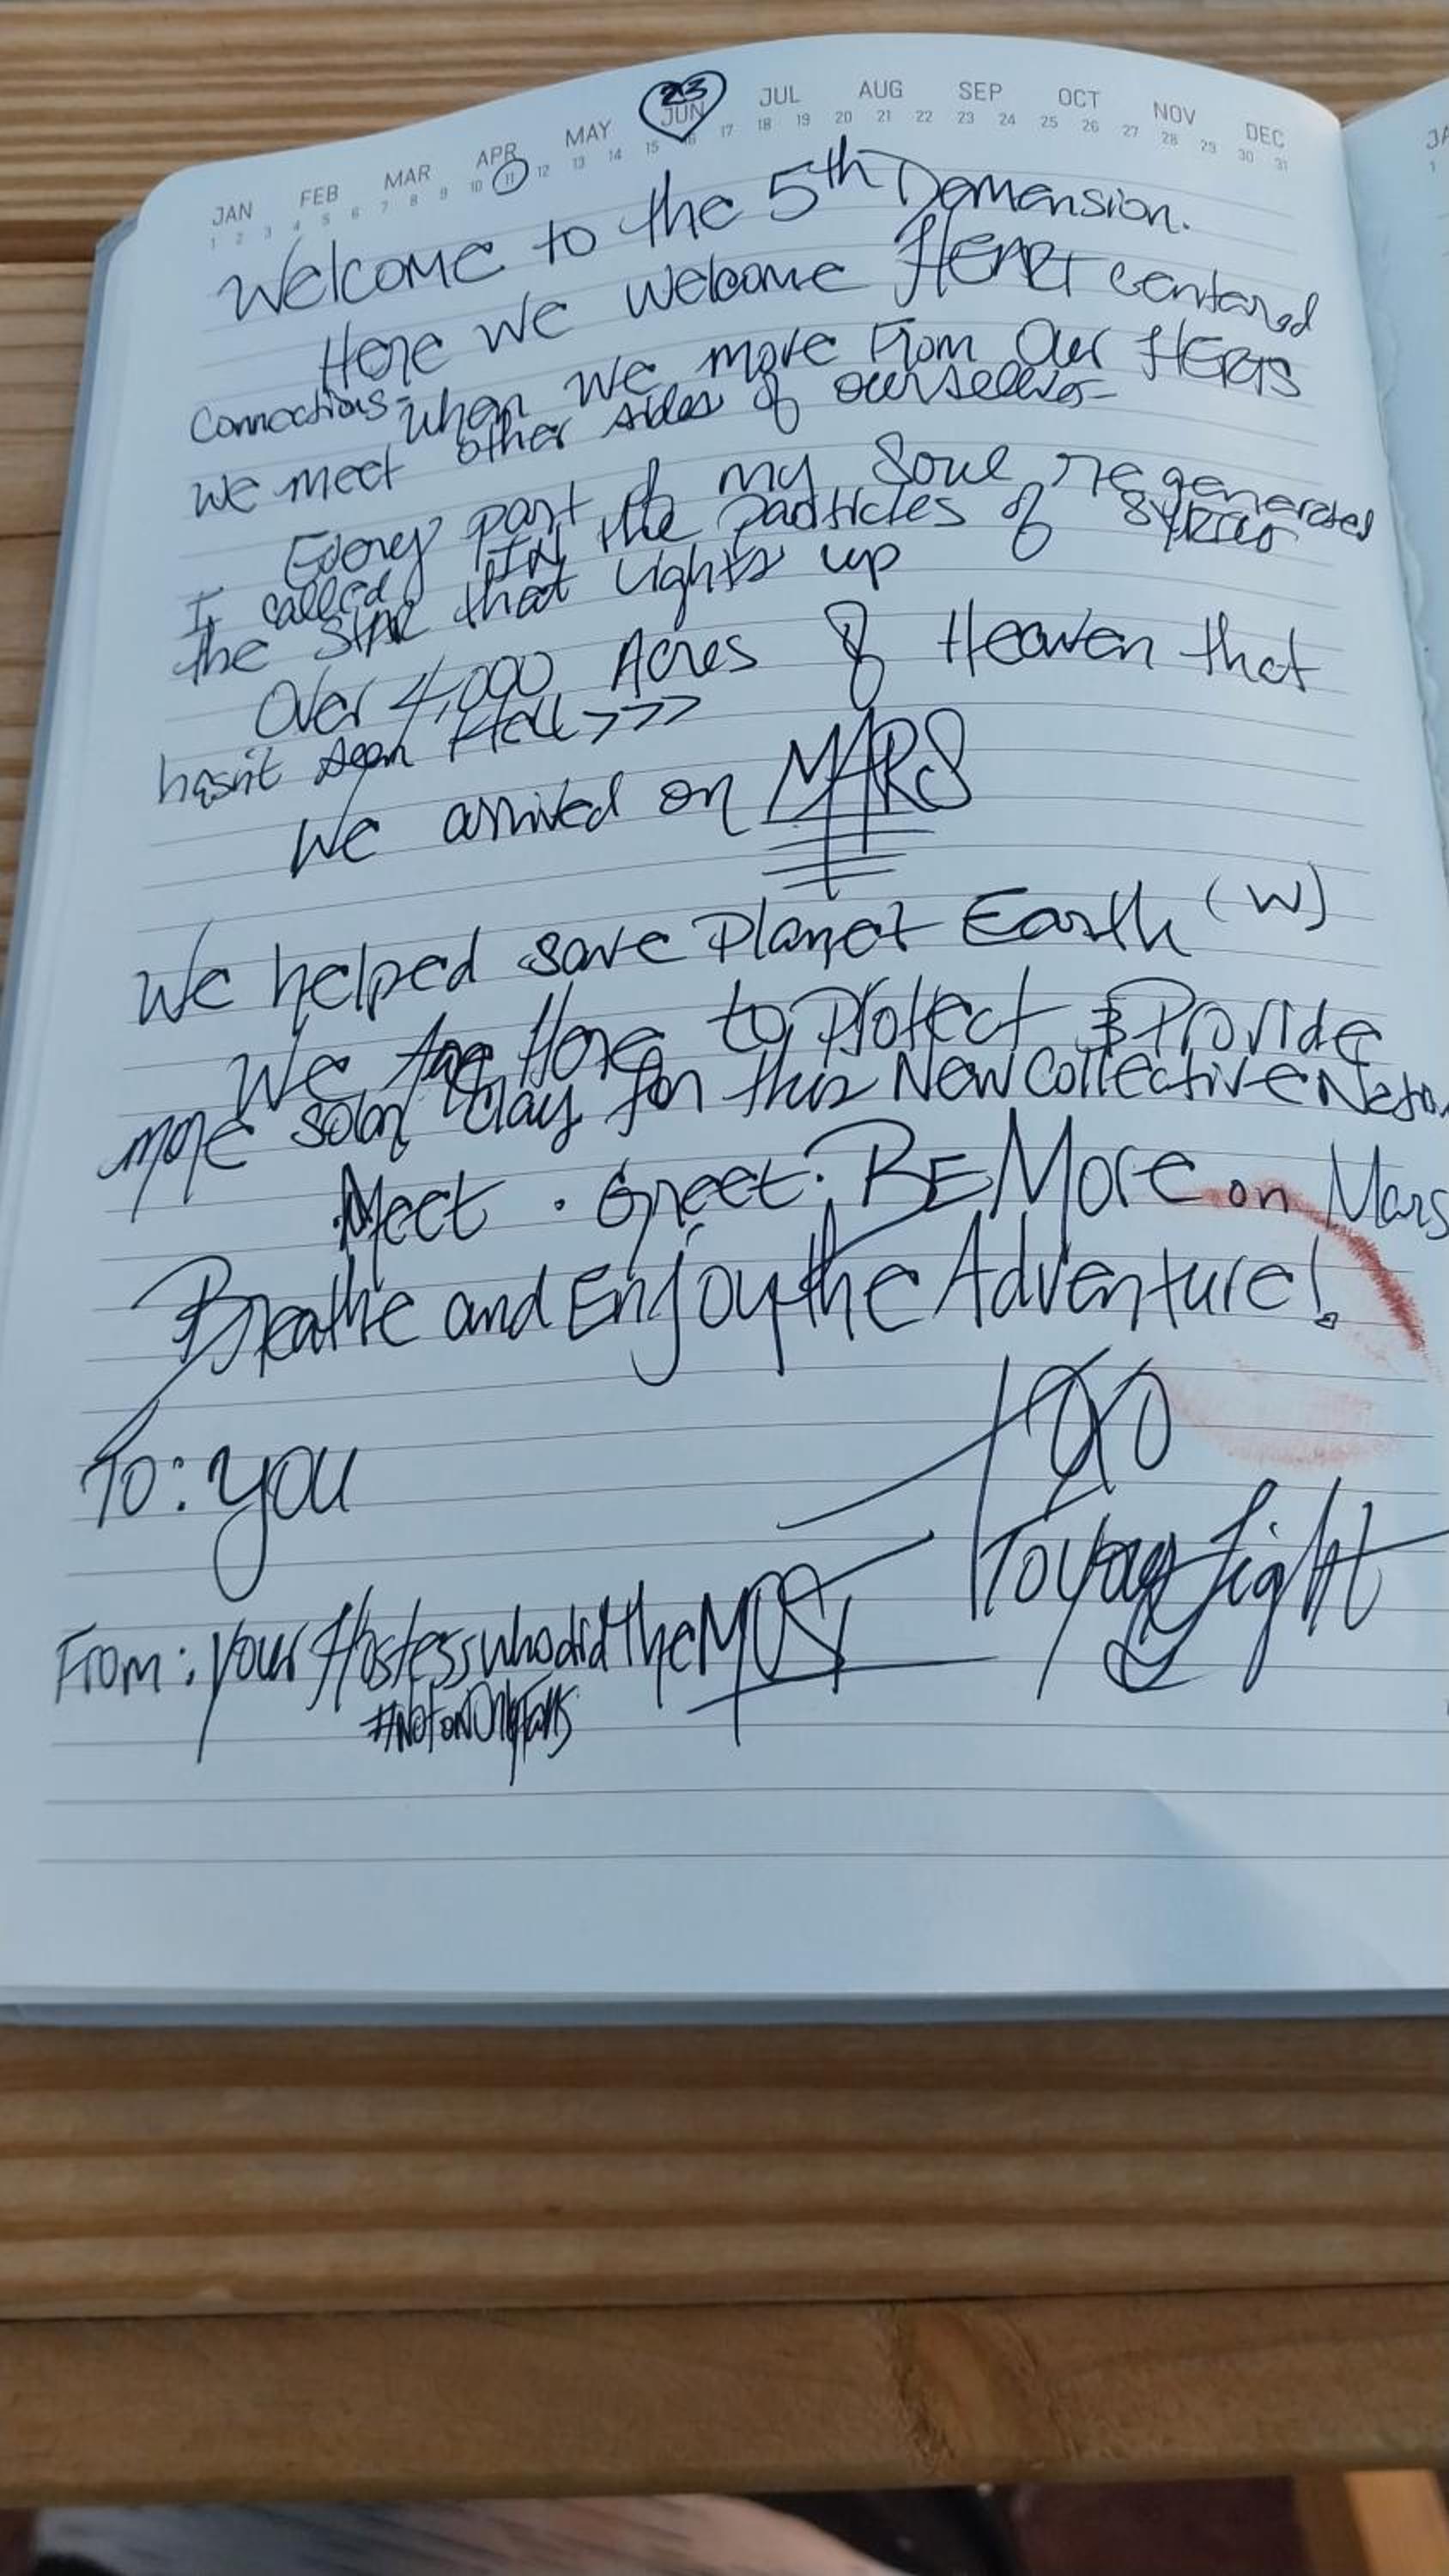 JAN FEB MAR APR MAY JUN JUL AUG SEP OCT NOV DEC
1 2 3 4 5 6 7 8 9 10 11 12 13 14 15 16 17 18 19 20 21 22 23 24 25 26 27 28 29 30 31
23
Welcome to the 5th Demension.
Here we welcome HEART centered
Connections - when we move From Our HERTS
we meet other sides of ourselves-
Every part of my Soul regenerated
I called IN the particles of
the STAR that Lights up
Over 4,000 Acres of Heaven that
hasn't seen Hell >>>
We arrived on MARS
We helped save Planet Earth (W)
We Are Here to Protect & Provide
more clay for this New Collective
Meet . Greet . BE More on Mars
Breathe and Enjoy the Adventure!
To: you
To your Light
From: your Hostess who did the MOST
#NotonOnlyFans